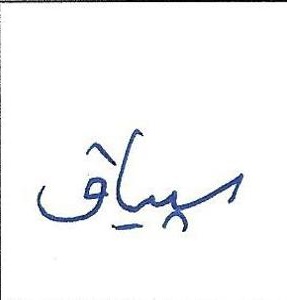 سیاق